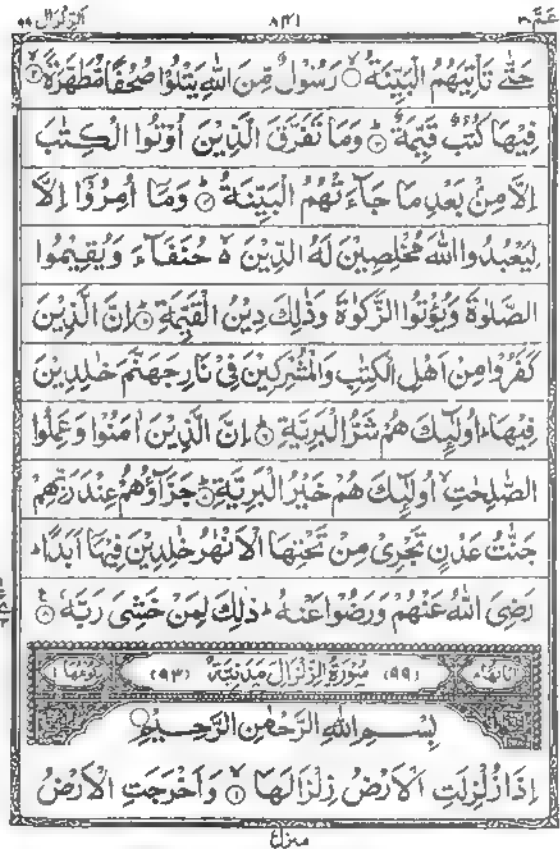 عَمَّ ٣٠ ٨٤١ الزِّلْزَال ٩٩
حَتّٰى تَاْتِيَهُمُ الْبَيِّنَةُ ۙ۝١ رَسُوْلٌ مِّنَ اللّٰهِ يَتْلُوْا صُحُفًا مُّطَهَّرَةً ۙ۝٢
فِيْهَا كُتُبٌ قَيِّمَةٌ ؕ۝٣ وَمَا تَفَرَّقَ الَّذِيْنَ اُوْتُوا الْكِتٰبَ
اِلَّا مِنْۢ بَعْدِ مَا جَآءَتْهُمُ الْبَيِّنَةُ ؕ۝٤ وَمَاۤ اُمِرُوْۤا اِلَّا
لِيَعْبُدُوا اللّٰهَ مُخْلِصِيْنَ لَهُ الدِّيْنَ ۙ۬ حُنَفَآءَ وَيُقِيْمُوا
الصَّلٰوةَ وَيُؤْتُوا الزَّكٰوةَ وَذٰلِكَ دِيْنُ الْقَيِّمَةِ ؕ۝٥ اِنَّ الَّذِيْنَ
كَفَرُوْا مِنْ اَهْلِ الْكِتٰبِ وَالْمُشْرِكِيْنَ فِيْ نَارِ جَهَنَّمَ خٰلِدِيْنَ
فِيْهَا ؕ اُولٰٓئِكَ هُمْ شَرُّ الْبَرِيَّةِ ؕ۝٦ اِنَّ الَّذِيْنَ اٰمَنُوْا وَعَمِلُوا
الصّٰلِحٰتِ ۙ اُولٰٓئِكَ هُمْ خَيْرُ الْبَرِيَّةِ ؕ۝٧ جَزَآؤُهُمْ عِنْدَ رَبِّهِمْ
جَنّٰتُ عَدْنٍ تَجْرِيْ مِنْ تَحْتِهَا الْاَنْهٰرُ خٰلِدِيْنَ فِيْهَاۤ اَبَدًا ؕ
رَضِيَ اللّٰهُ عَنْهُمْ وَرَضُوْا عَنْهُ ؕ ذٰلِكَ لِمَنْ خَشِيَ رَبَّهٗ ۝٨
(٩٩) سُوْرَةُ الزِّلْزَالِ مَدَنِيَّةٌ (٩٣)
بِسْمِ اللّٰهِ الرَّحْمٰنِ الرَّحِيْمِ
اِذَا زُلْزِلَتِ الْاَرْضُ زِلْزَالَهَا ۙ۝١ وَاَخْرَجَتِ الْاَرْضُ